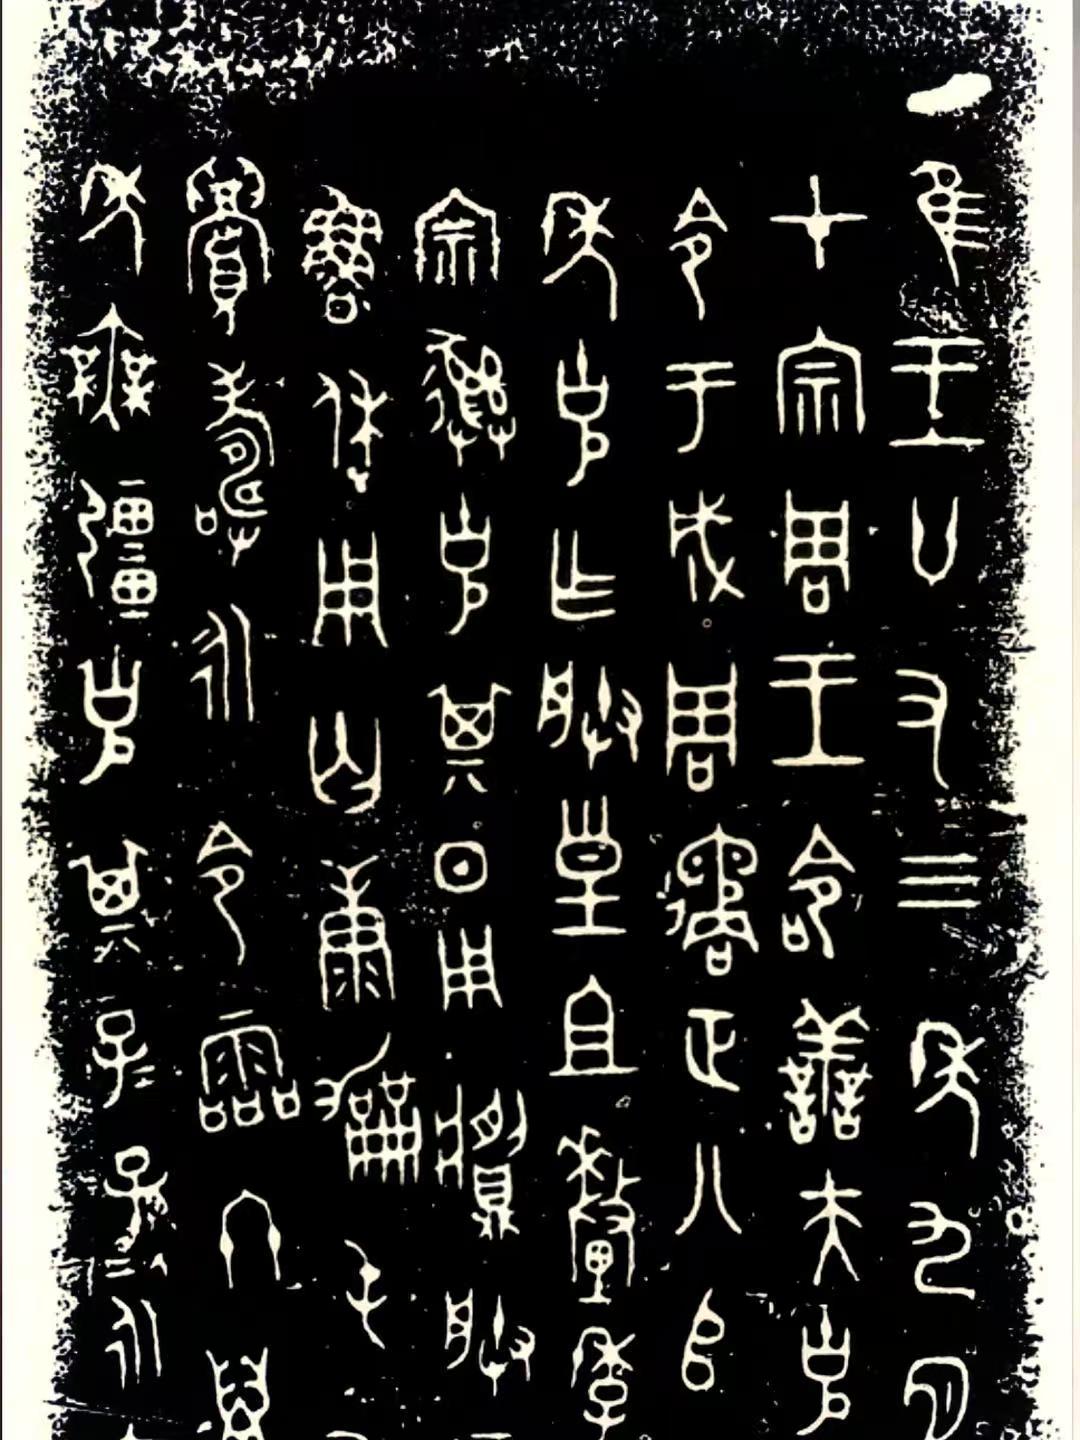 隹王廿又三年九月
才宗周王命善夫克
令于成周遹正八𠂤
年克乍朕皇且釐季
宗彝克其日用䵼朕
魯休用匄康勵屯
眉壽永令霝冬萬
年無彊克其子子孫永